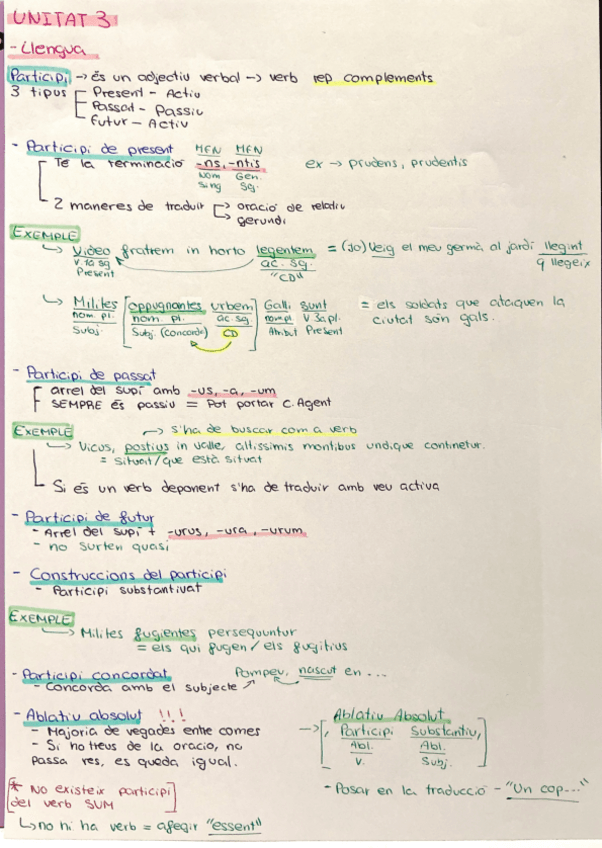 UNITAT 3
- Llengua
Participi → és un adjectiu verbal → verb rep complements
3 tipus Present - Actiu
Passat - Passiu
Futur - Actiu
- Participi de present MFN MFN
Te la terminació -ns, -ntis ex → prudens, prudentis
Nom Gen.
Sing Sg.
2 maneres de traduir → oració de relatiu
→ gerundi
EXEMPLE
→ Video fratrem in horto legentem = (Jo) Veig el meu germà al jardí llegint
V. 1a sg ac. sg. q llegeix
Present "CD"
→ Milites [oppugnantes urbem] Galli sunt = els soldats que ataquen la
nom. pl. nom. pl. ac. sg nom pl V 3a pl. ciutat són gals.
Subj. Subj. (concorda) CD Atribut Present
- Participi de passat
arrel del supí amb -us, -a, -um
SEMPRE és passiu = Pot portar C. Agent
EXEMPLE → s'ha de buscar com a verb
→ Vicus, positus in valle, altissimis montibus undique continetur.
= situat/que està situat
Si és un verb deponent s'ha de traduir amb veu activa
- Participi de futur
- Arrel del supí + -urus, -ura, -urum
- no surten quasi
- Construccions del participi
- Participi substantivat
EXEMPLE
→ Milites fugientes persequuntur
= els qui fugen/els fugitius
- Participi concordat Pompeu, nascut en ...
- Concorda amb el subjecte
- Ablatiu absolut !!! Ablatiu Absolut
- Majoria de vegades entre comes → [, Participi Substantiu,]
- Si ho treus de la oració, no Abl. Abl.
passa res, es queda igual. V. Subj.
[* No existeix participi - Posar en la traducció - "Un cop..."
del verb SUM]
↳ no hi ha verb = afegir "essent"